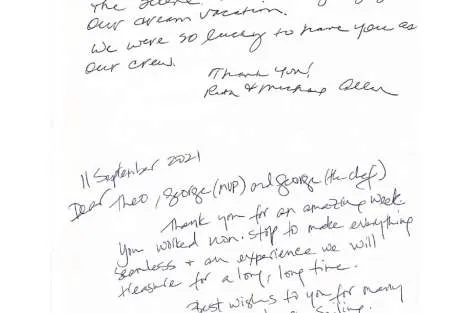 our dream vacation.
We were so lucky to have you as
our crew.
Thank You!
Ruth & Michael Allen
11 September 2021
Dear Theo, George (MVP) and George (the chef)
Thank you for an amazing week
you worked non-stop to make everything
seamless + an experience we will
treasure for a long, long time.
Best wishes to you for many